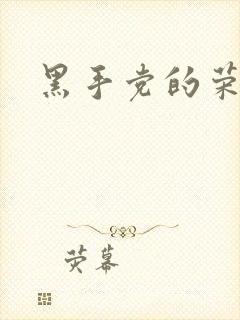 黑手党的荣
荧幕